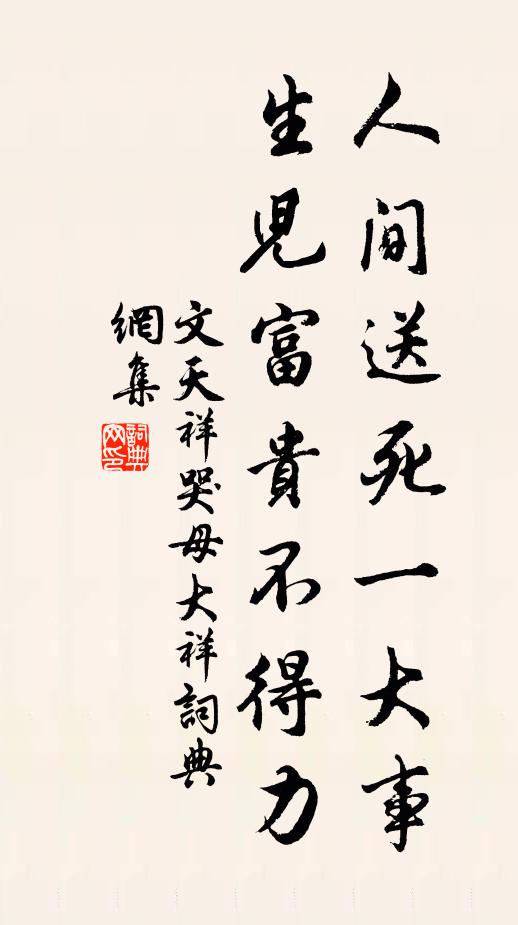 人間送死一大事
生児富貴不得力
文天祥哭母大祥詞典
網集
詞典
网印